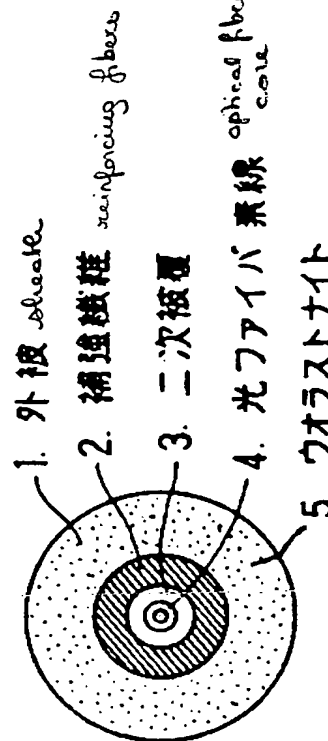 1. 外被 sheath
2. 補強繊維 reinforcing fibers
3. 二次被覆
4. 光ファイバ素線 optical fibe
core
5 ウオラストナイト